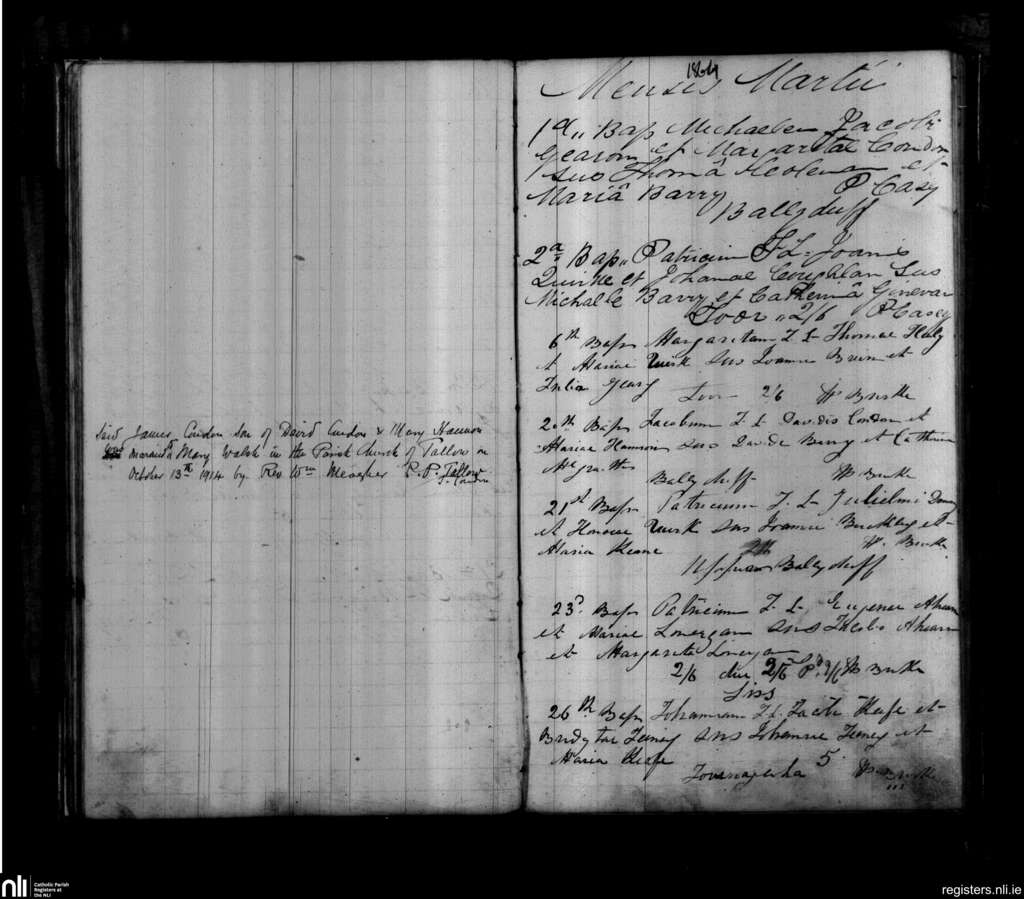 Said James Condon son of David Condon & Mary Hannon
was married to Mary Walsh in the Parish Church of Tallow on
October 13th 1914 by Rev Wm Meagher P.P. Tallow
1864
Mensis Martii
1a „ Bap Michaelem Jacobi
Gearon et Margaritae Condon
Sus Thomâ et
Mariâ Barry P Casey
Ballyduff
2a Bap„ Patricium F L Joanis
Quirke et Johanae Coughlan Sus
Michaele Barry et Catherinâ
Toor „ 2/6 P Casey
6th Bap Margaritam F L Thomae Healy
et Mariae Quirk Sus Joanne et
Julia Geary
Toor 2/6 W Burke
20th Bap Jacobum F L Davidis Condon et
Mariae Hannon Sus Davide Barry et Catherina
McGrath
Ballyduff W Burke
21st Bap Patricium F L Gulielmi
et Honorae Quirk Sus Joanne Buckley et
Maria Keane W. Burke
Ballyduff
23d Bap Patricium F. L. Eugenii Ahearn
et Mariae Lonergan Sus Jacobo Ahearn
et Margarita Lonergan
2/6 due 2/6 Pd 2/6 W Burke
Liss
26th Bap Johannam F L Jacobi Keefe et
Bridgitae Feeney Sus Johanne Feeney et
Maria Keefe
5 W Burke
nli
Catholic Parish
Registers at
the NLI
registers.nli.ie